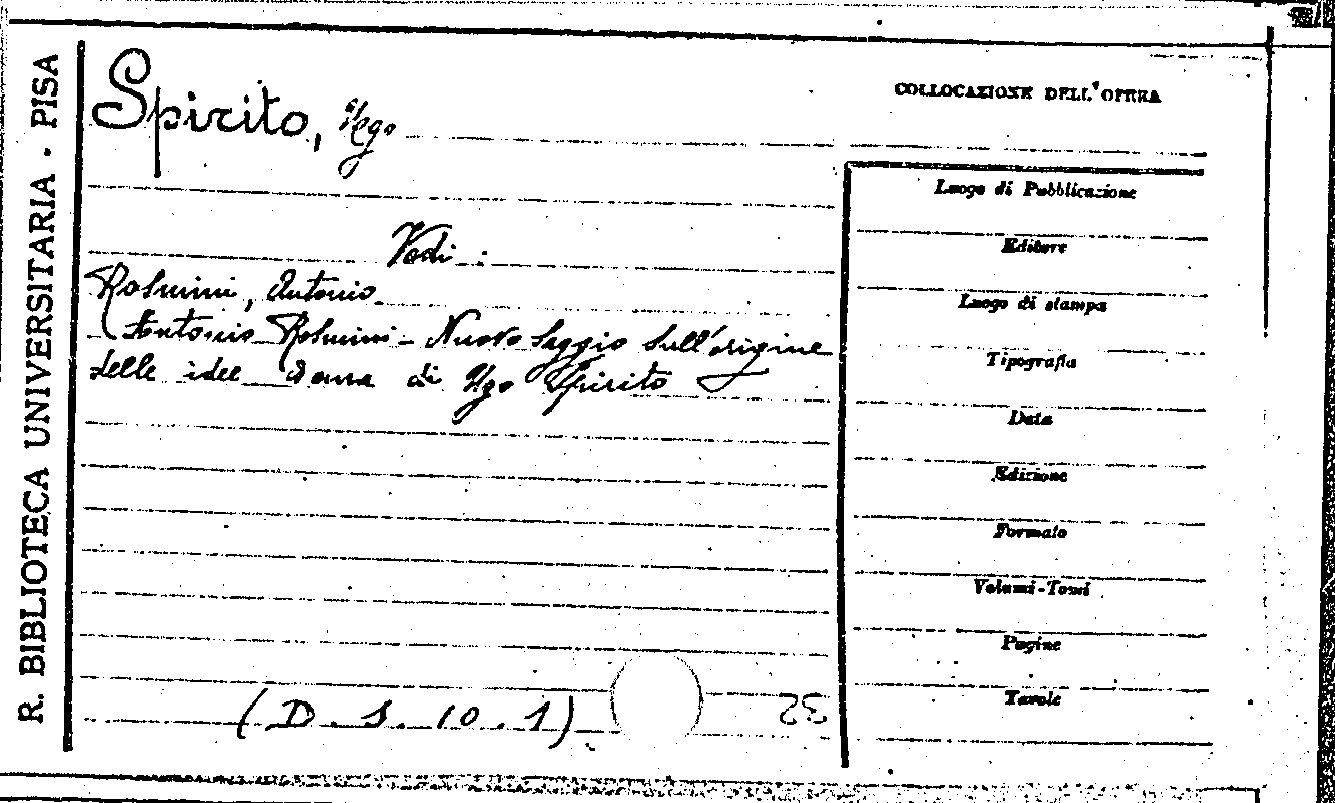 R. BIBLIOTECA UNIVERSITARIA - PISA
Spirito, Ugo
COLLOCAZIONE DELL'OPERA
Luogo di Pubblicazione
Editore
Luogo di stampa
Tipografia
Data
Edizione
Formato
Volumi-Tomi
Pagine
Tavole
Vedi :
Rosmini, Antonio
Antonio Rosmini - Nuovo Saggio sull'origine
delle idee di Ugo Spirito
(D. 1. 10. 1)